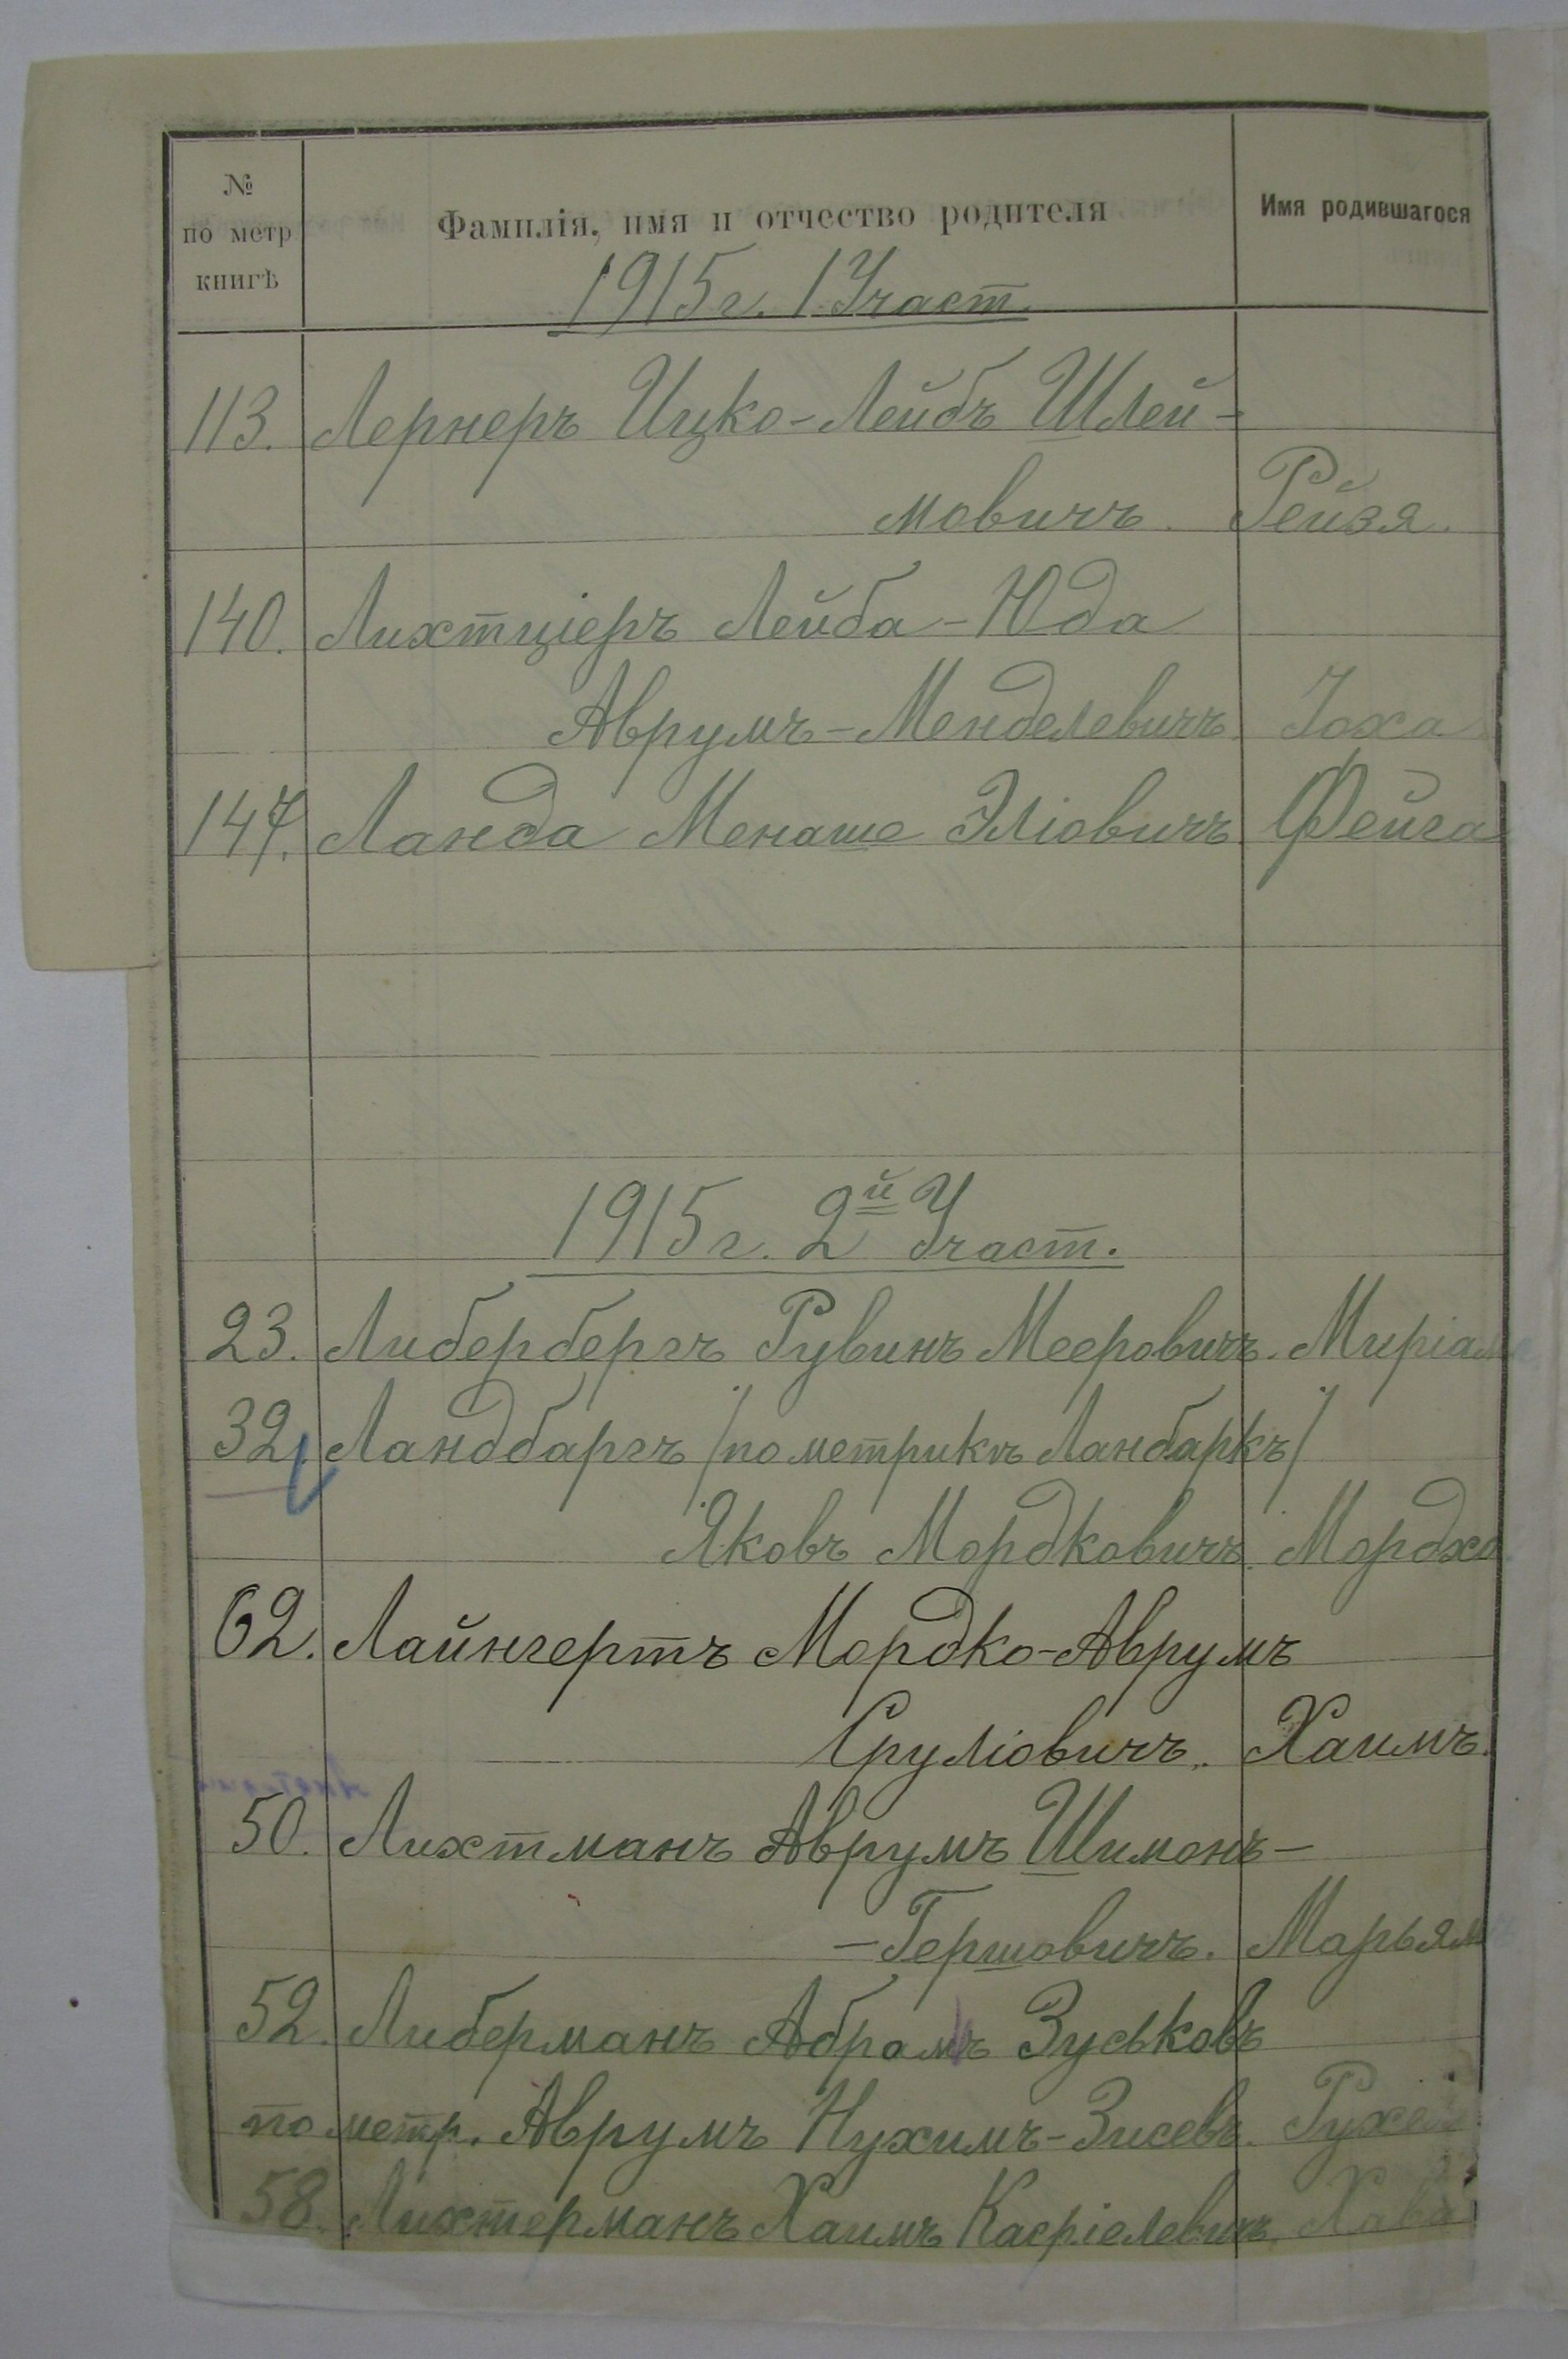 № по метр книгѣ | Фамилія, имя и отчество родителя | Имя родившагося
1915 г. 1 Участ.
113. Лернеръ Ицко-Лейбъ Шлей-
мовичъ. Рейзя.
140. Лихтціеръ Лейба-Юда
Аврумъ-Менделевичъ. Іоха
147. Ланда Менаше Эліовичъ. Фейга
1915 г. 2й Участ.
23. Либербергъ Рувинъ Мееровичъ. Миріам
32. Ландбаргъ /по метрикѣ Ланбаркъ/
Яковъ Мордковичъ. Мордхо
62. Лайнгертъ Мордко-Аврумъ
Сруліовичъ. Хаимъ.
50. Лихтманъ Аврумъ Шимонъ-
-Гершовичъ. Марьям
52. Либерманъ Абрамъ Зуськовъ
по метр. Аврумъ Нухимъ-Зисевъ.
58. Лихтерманъ Хаимъ Касріелевичъ. Хава